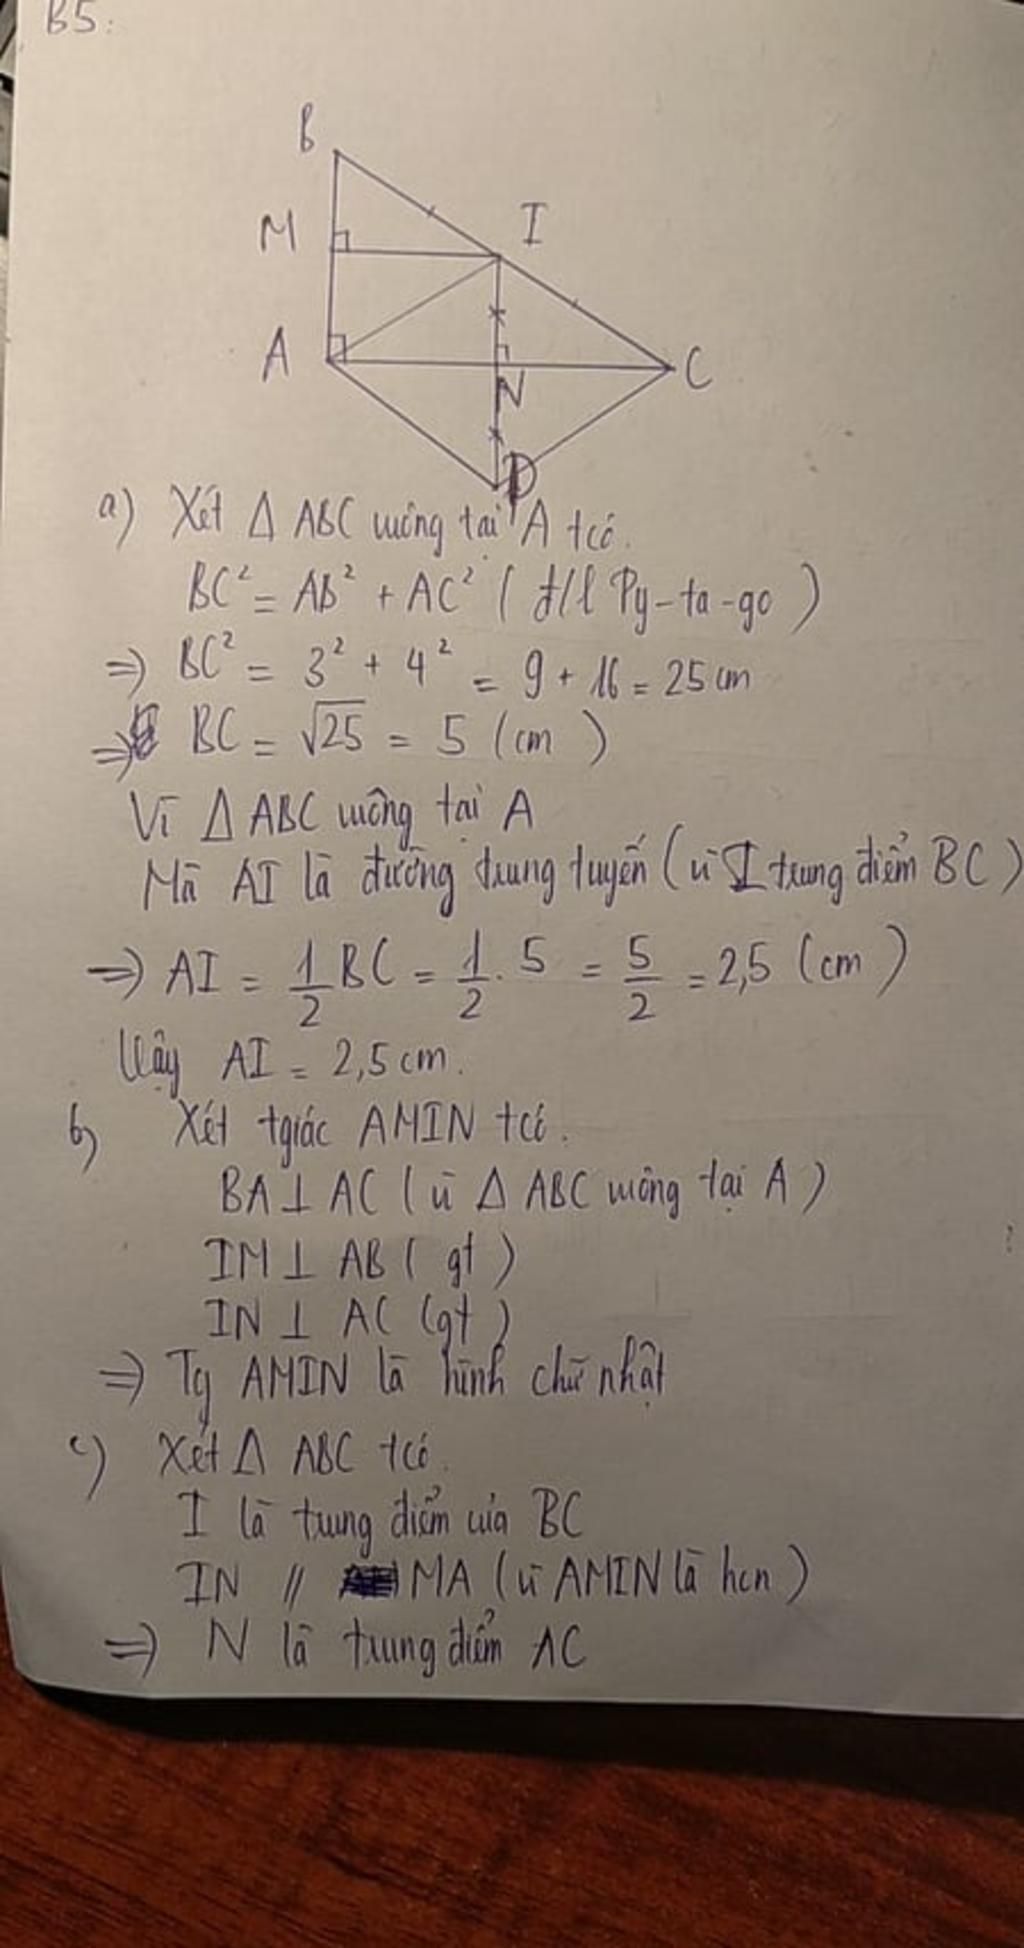 B5:
B
M
I
A
N
C
D
a) Xét Δ ABC vuông tại A tcó.
BC² = AB² + AC² ( đ/l Py-ta-go )
=> BC² = 3² + 4² = 9 + 16 = 25 cm
=> BC = √25 = 5 (cm )
Vì Δ ABC vuông tại A
Mà AI là đường trung tuyến ( vì I trung điểm BC )
=> AI = 1/2 BC = 1/2 . 5 = 5/2 = 2,5 (cm )
Vậy AI = 2,5 cm.
b) Xét tgiác AMIN tcó.
BA ⊥ AC ( vì Δ ABC vuông tại A )
IM ⊥ AB ( gt )
IN ⊥ AC (gt )
=> Tg AMIN là hình chữ nhật
c) Xét Δ ABC tcó.
I là trung điểm của BC
IN // MA ( vì AMIN là hcn )
=> N là trung điểm AC